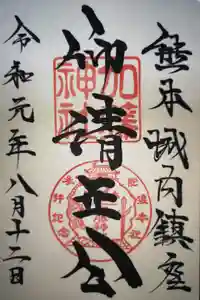 熊本城内鎮座
仰清正公
加藤
神社
令和元年八月十二日